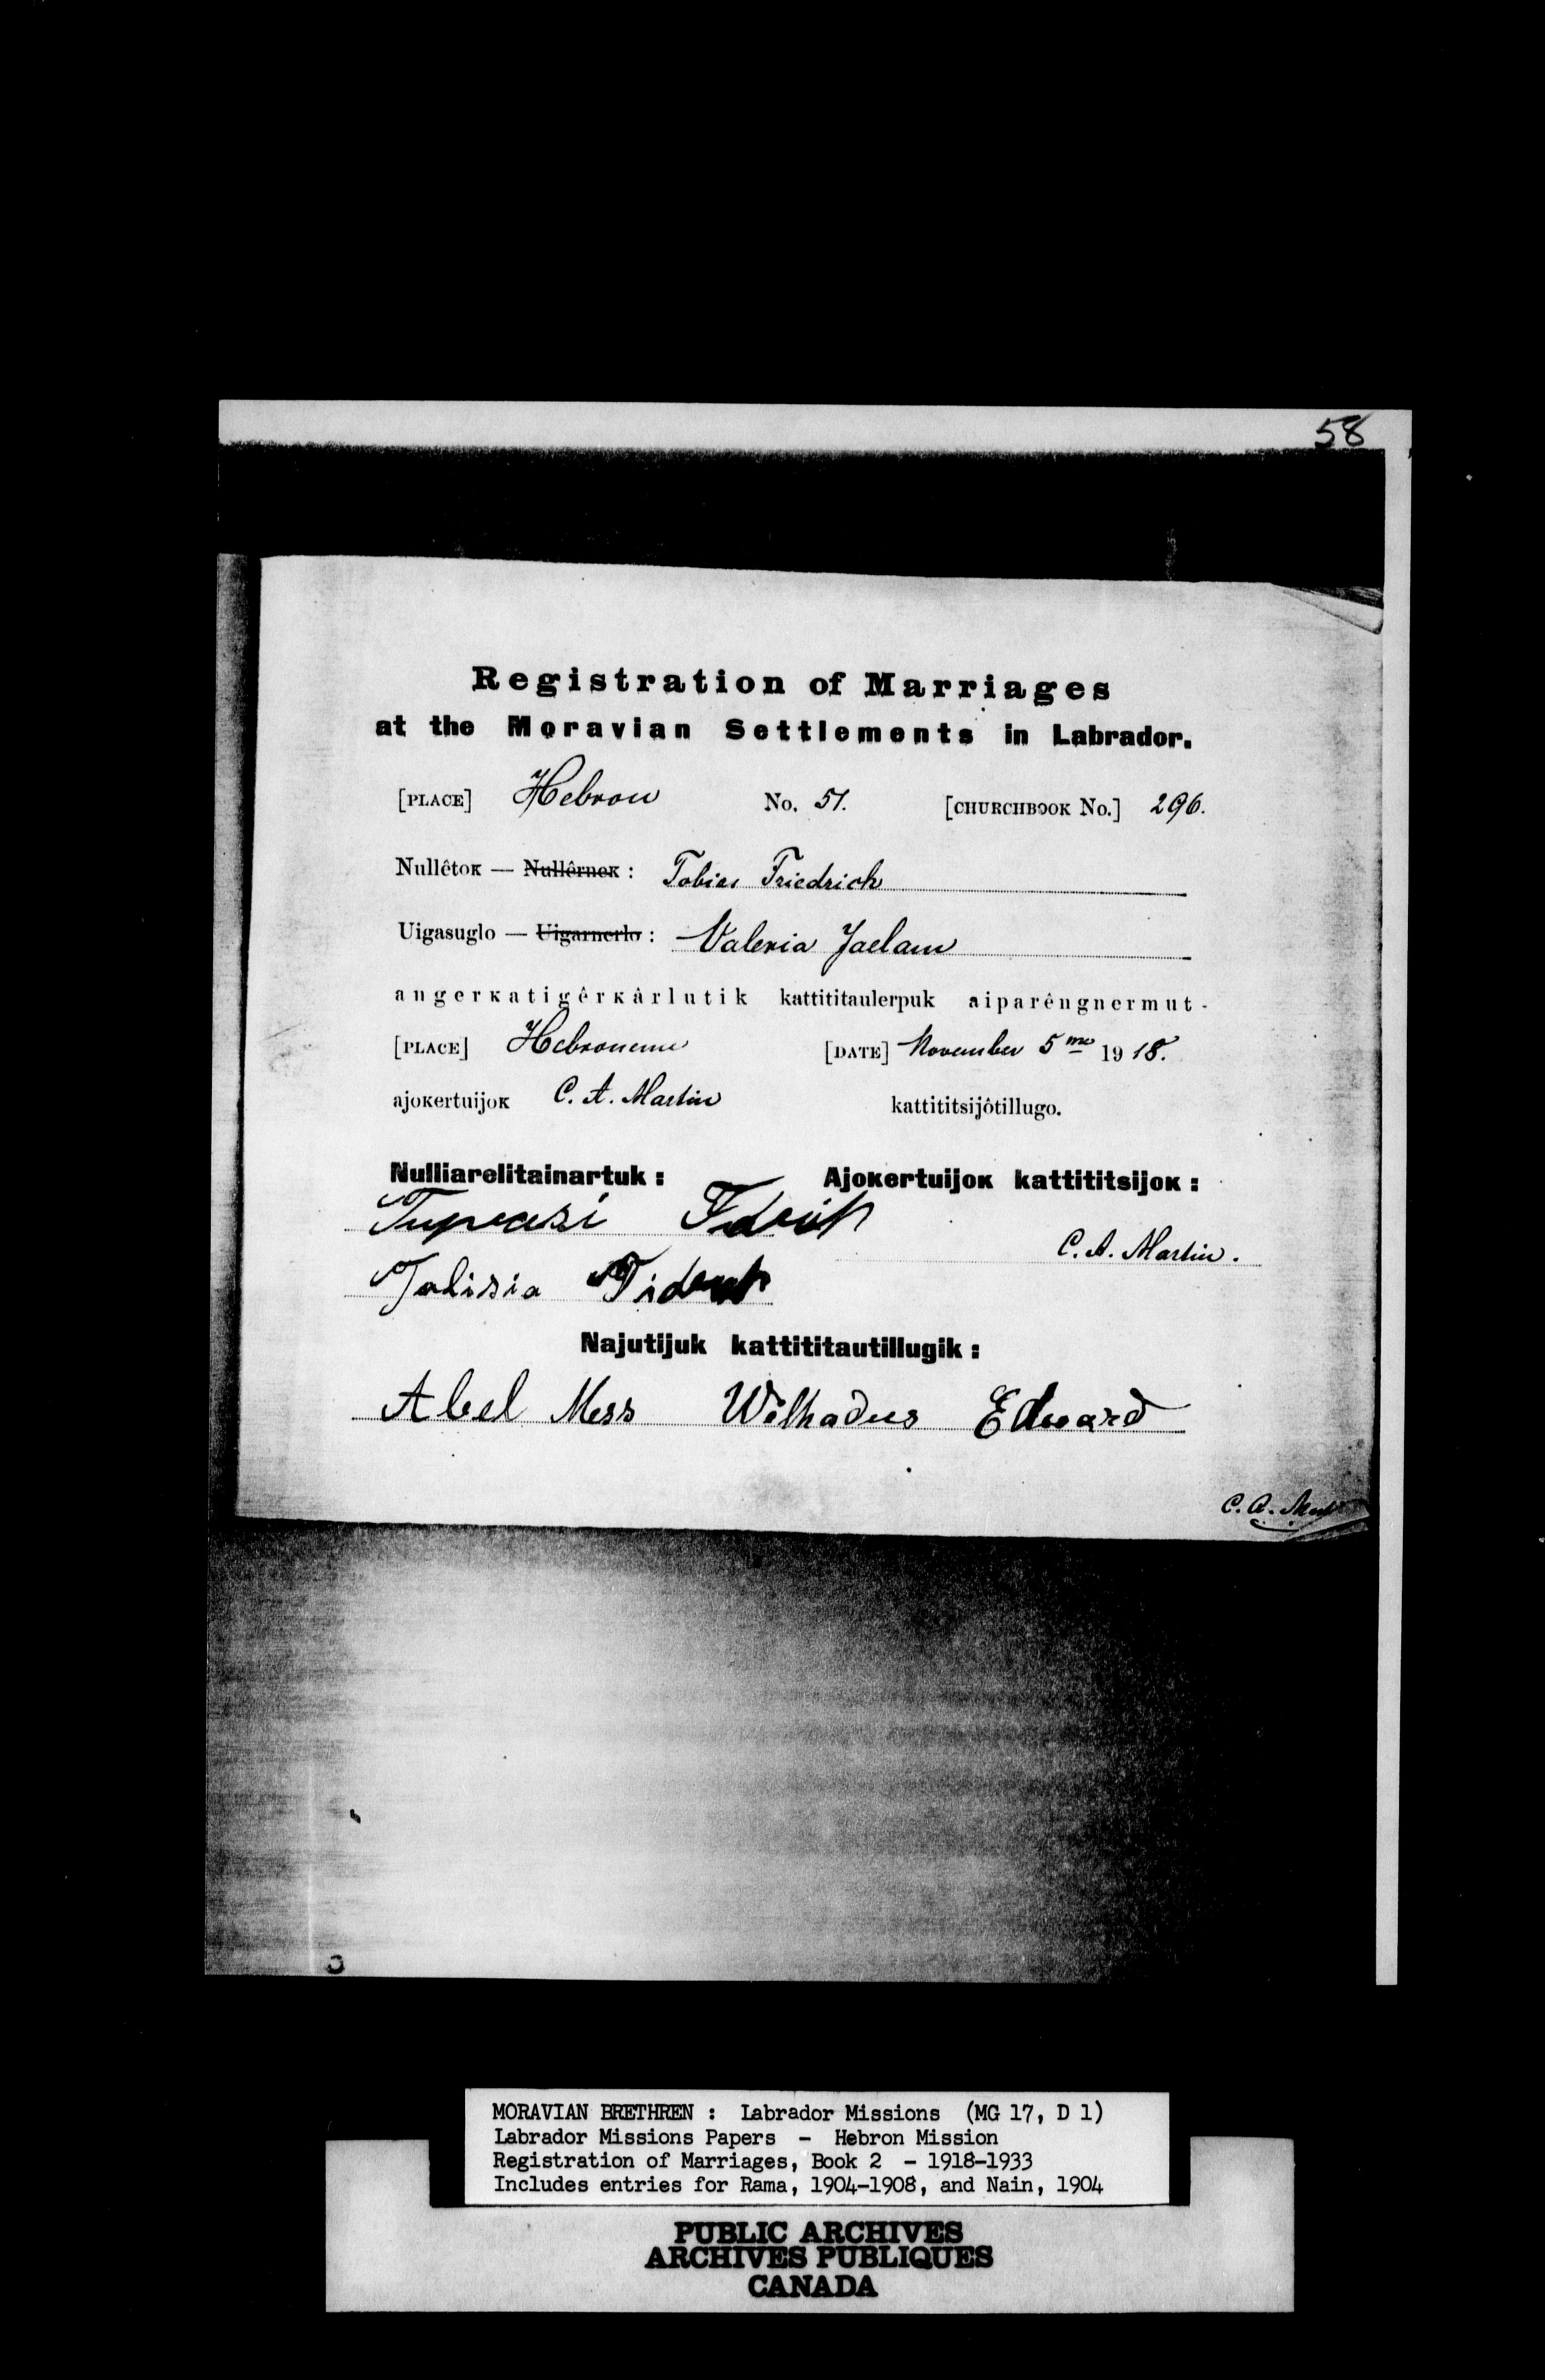 58
Registration of Marriages
at the Moravian Settlements in Labrador.
[PLACE] Hebron No. 51. [CHURCHBOOK No.] 296.
Nullêtoĸ — Nullêrneĸ : Tobias Friedrich
Uigasuglo — Uigarnerlo : Valeria Jaelam
angerĸatigêrĸârlutik kattititaulerpuk aiparêngnermut-
[PLACE] Hebroneme [DATE] November 5 me 1918.
ajoĸertuijoĸ C. A. Martin kattititsijôtillugo.
Nulliarelitainartuk : Ajoĸertuijoĸ kattititsijoĸ :
C. A. Martin.
Najutijuk kattititautillugik :
Abel Mess Wilhadus Edward
C. A.
MORAVIAN BRETHREN : Labrador Missions (MG 17, D 1)
Labrador Missions Papers - Hebron Mission
Registration of Marriages, Book 2 - 1918-1933
Includes entries for Rama, 1904-1908, and Nain, 1904
PUBLIC ARCHIVES
ARCHIVES PUBLIQUES
CANADA